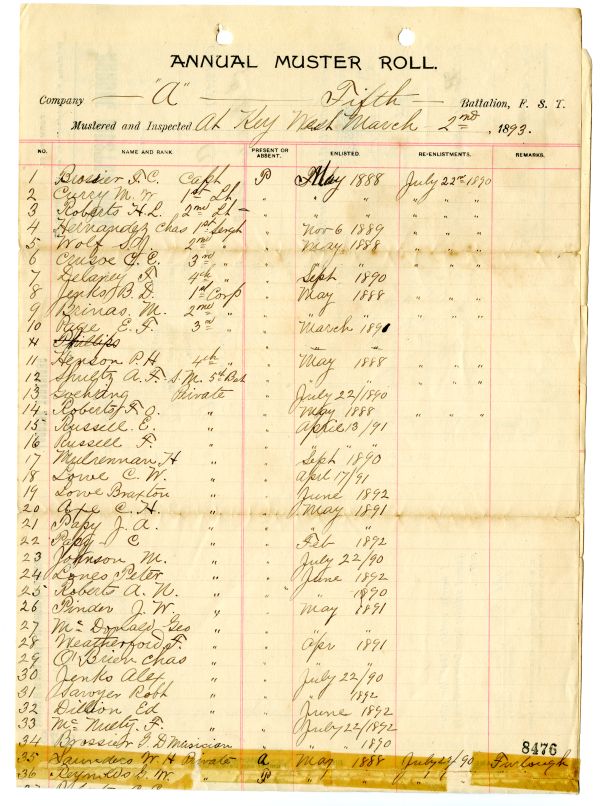 ANNUAL MUSTER ROLL.
Company "A" Fifth Battalion, F. S. T.
Mustered and Inspected At Key West March 2nd, 1893.
NO. NAME AND RANK. PRESENT OR ABSENT. ENLISTED. RE-ENLISTMENTS. REMARKS.
1 Brossier F. C. Capt P May 1888 July 22nd 1890
2 Curry M. W. 1st Lt " " " " " "
3 Roberts H. L. 2nd Lt " " " " " "
4 Hernandez Chas 1st Sergt " Nov 6 1889 " " "
5 Wolf 2nd " " May 1888 " " "
6 Crusoe C. C. 3rd " " " " " " "
7 Delaney F 4th " " Sept 1890
8 Jenks B. D. 1st Corp " May 1888 " " "
9 Brinas. M. 2nd " " " " " " "
10 E. F. 3rd " " March 1891
11 Phillips
11 Henson P. H 4th " " May 1888 " " "
12 Shultz A. F. S. M. 5th Bat " " " " " "
13 Private " July 22/1890
14 Roberts F. O. " " May 1888 " " "
15 Russell E. " " April 13/91
16 Russell F. " " " "
17 Mulrennan. H " " Sept 1890
18 Lowe C. W. " " April 17/91
19 Lowe Braxton " " June 1892
20 C. H. " " May 1891
21 Papy J. A. " " " "
22 Papy C " " Feb 1892
23 Johnson M. " " July 22/90
24 Lones Peter " " June 1892
25 Roberts A. N. " " " 1890
26 Pinder J. W. " " May 1891
27 McDonald Geo " " " "
28 Weatherford F. " " Apr 1891
29 O'Brien Chas " " " "
30 Jenks Alex " " July 22/90
31 Sawyer Robt " " " 1892
32 Dillon Ed " " June 1892
33 F. " " July 22/1892
34 Brossier G. D Musician " " 1890
8476
35 Saunders W. H Private A May 1888 July 22/90 Furlough
36 Reynolds G. W. " P " "